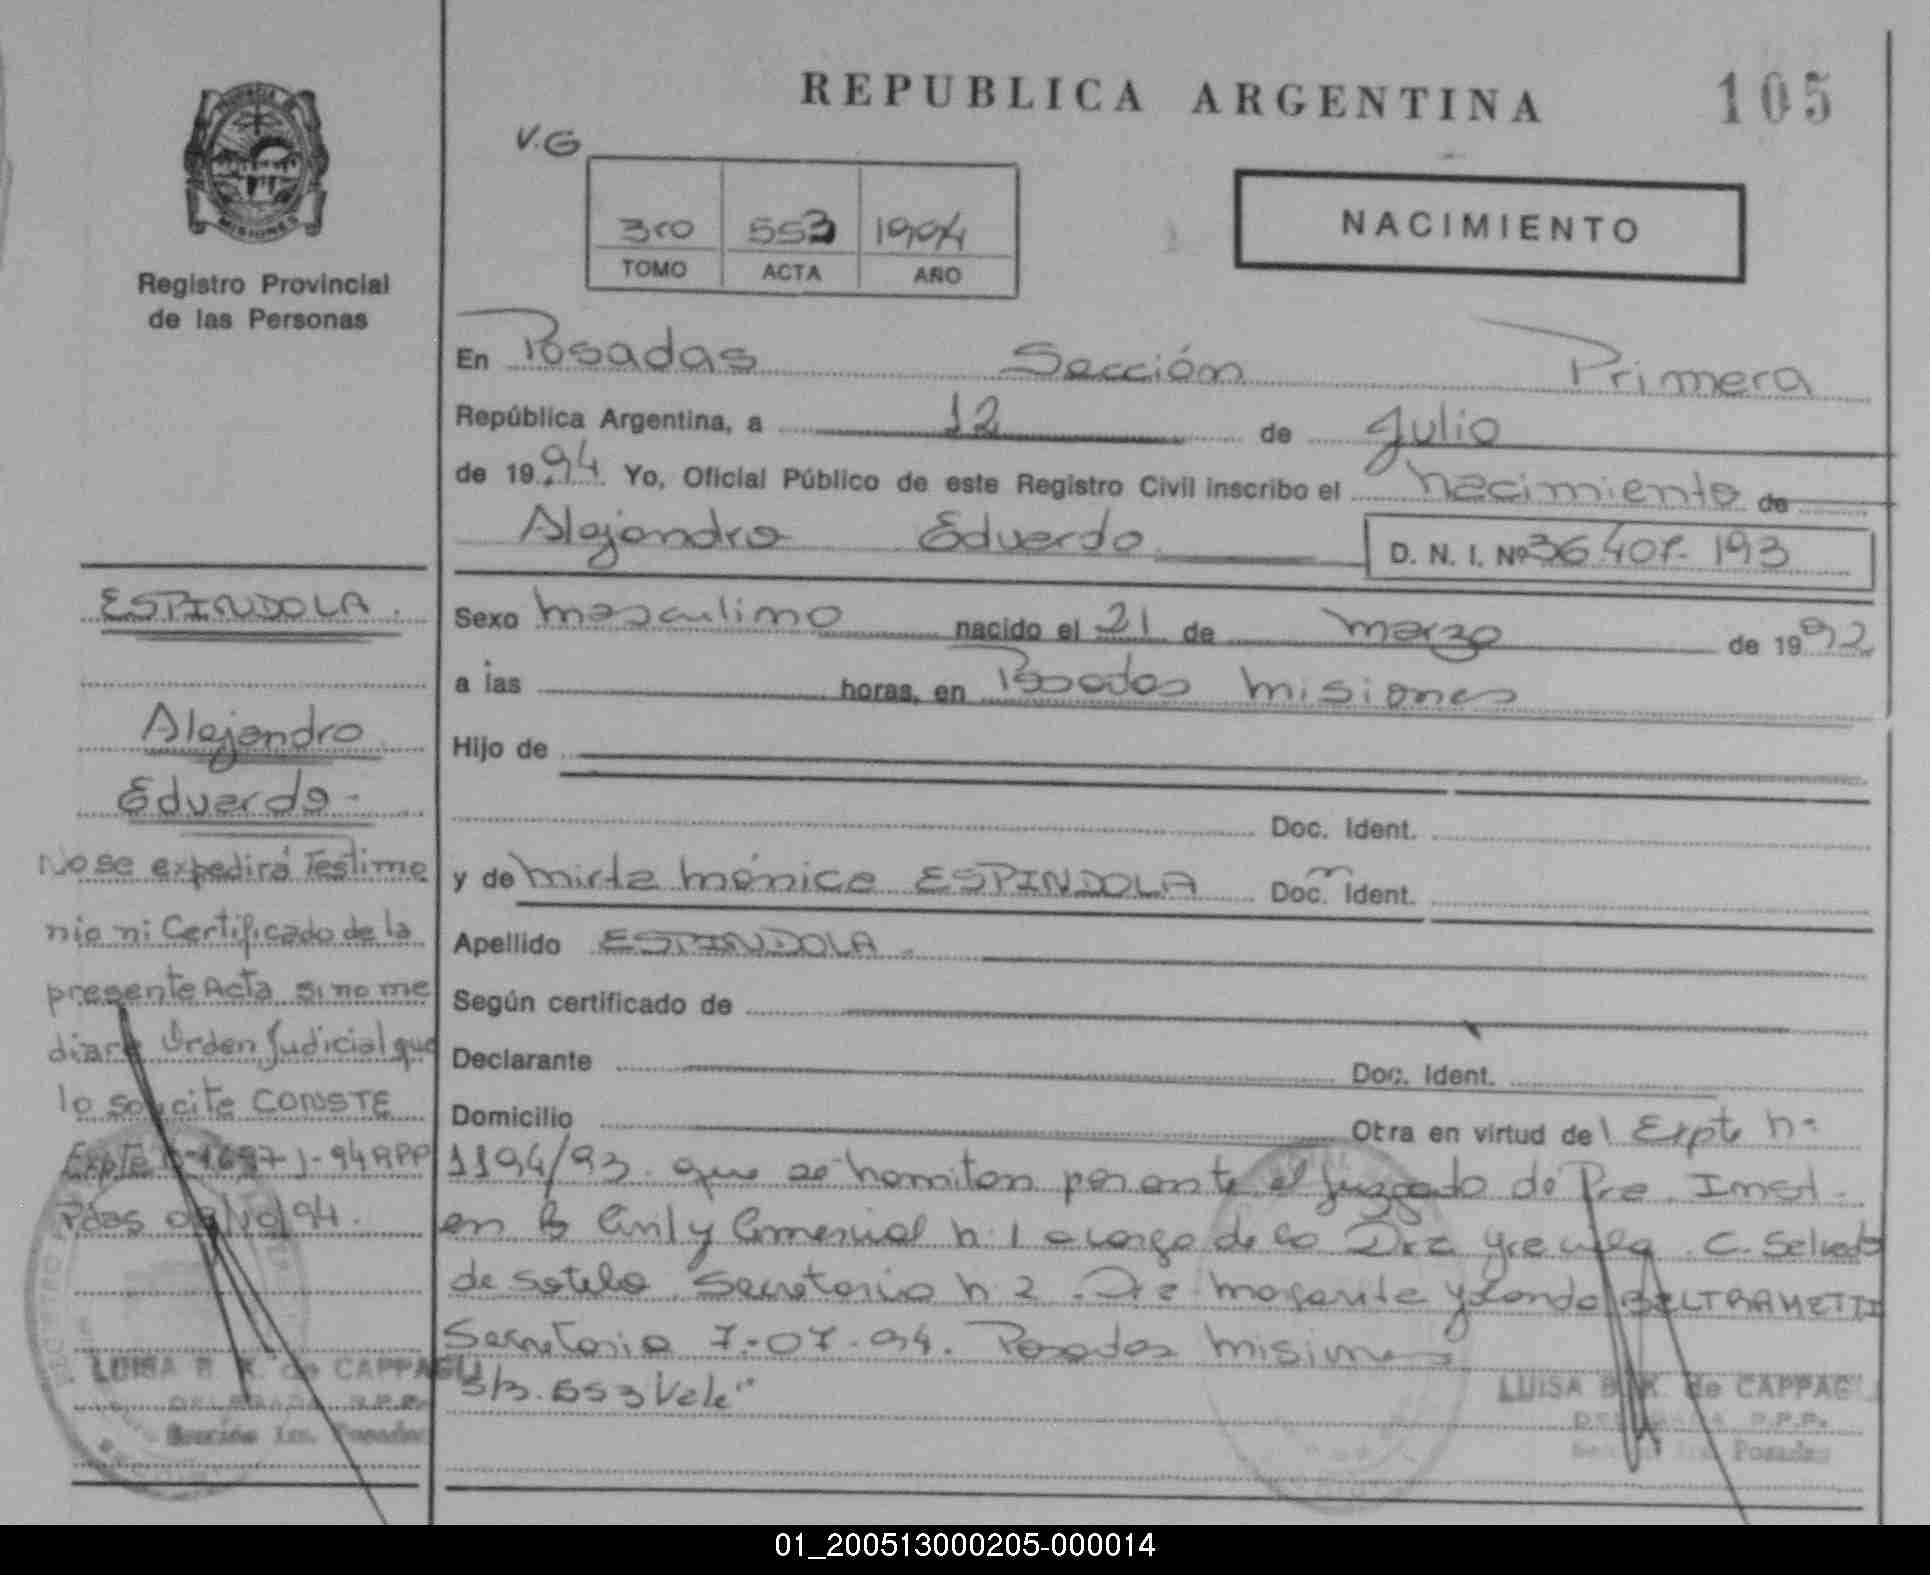 REPUBLICA ARGENTINA
105
PROVINCIA DE
MISIONES
Registro Provincial
de las Personas
V.G
3ro 553 1994
TOMO ACTA AÑO
NACIMIENTO
En Posadas Sección Primera
República Argentina, a 12 de Julio
de 1994 Yo, Oficial Público de este Registro Civil inscribo el nacimiento de
Alejandro Eduardo D. N. I. Nº 36.407.193
Sexo masculino nacido el 21 de marzo de 1992
a las horas, en Posadas Misiones
Hijo de
Doc. Ident.
y de Mirta Mónica ESPINDOLA Doc. Ident.
Apellido ESPINDOLA.
Según certificado de
Declarante Doc. Ident.
Domicilio Otra en virtud del Expte nº
1194/93. que se tramitan por ante el Juzgado de Pre. Inst.
en lo Civil y Comercial n. 1 a cargo de la Dra C.
de Sotelo Secretaria n 2. Dra Margarita Yolanda BELTRAMETTI
Secretaria 7-07-94. Posadas Misiones
"S/B. 553 Vale"
ESPINDOLA.
Alejandro
Eduardo-
No se expedirá Testimo
nio ni Certificado de la
presente Acta si no me
diare Orden Judicial que
lo solicite CONSTE
Expte 1697-J-94 RPP
Pdas 94.
LUISA B. K. de CAPPAGLI
DELEGADA R.P.P.
Sección 1ra. Posadas
LUISA B. K. de CAPPAGLI
DELEGADA R.P.P.
Sección 1ra. Posadas
01_200513000205-000014